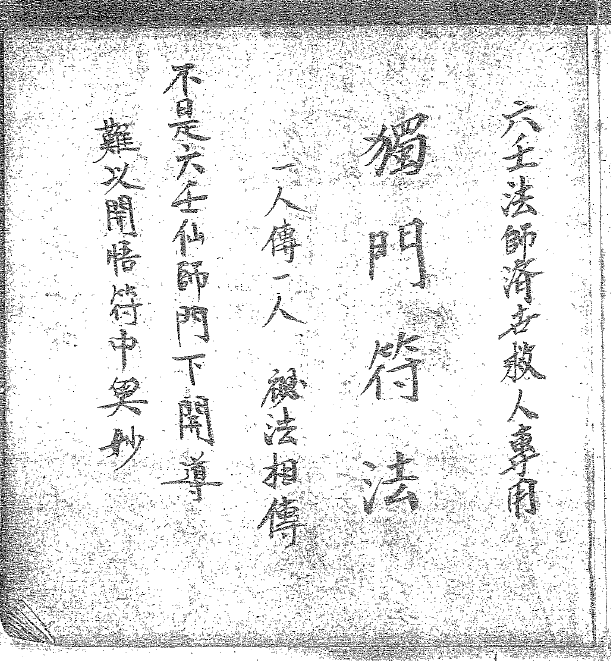 六壬法師濟世救人專用
獨門符法
一人傳一人 秘法相傳
不是六壬仙師門下開導
難以開悟符中奧妙